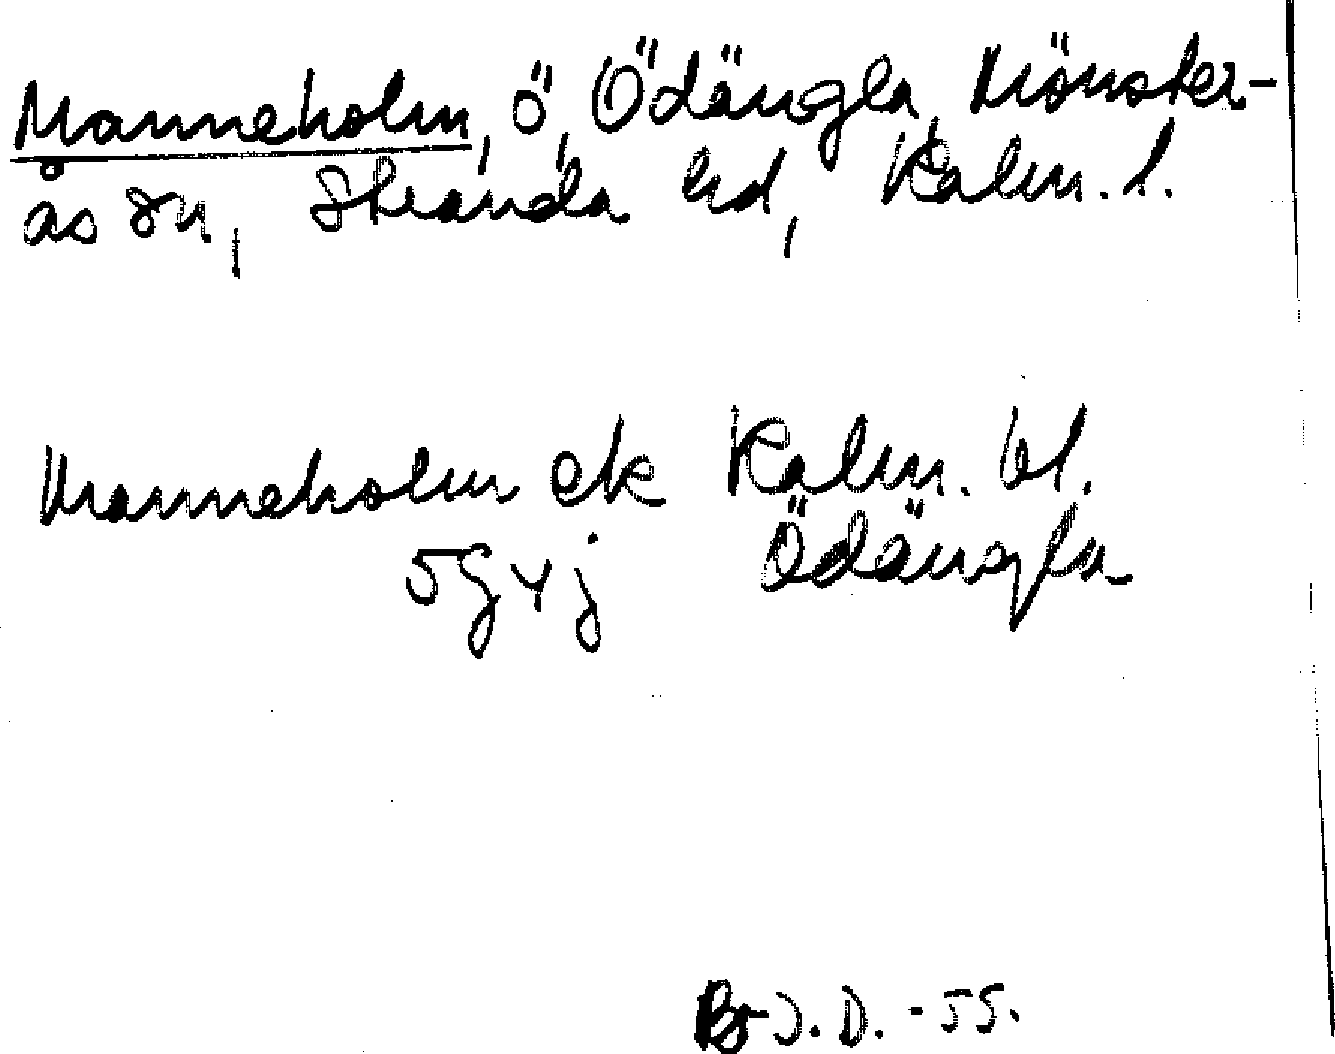 Manneholm, ö, Ödängla, Mönster-
ås sn, Stranda hd, Kalm. l.
Manneholm ek Kalm. bl.
5g4j Ödängla
B-J.D. -55.